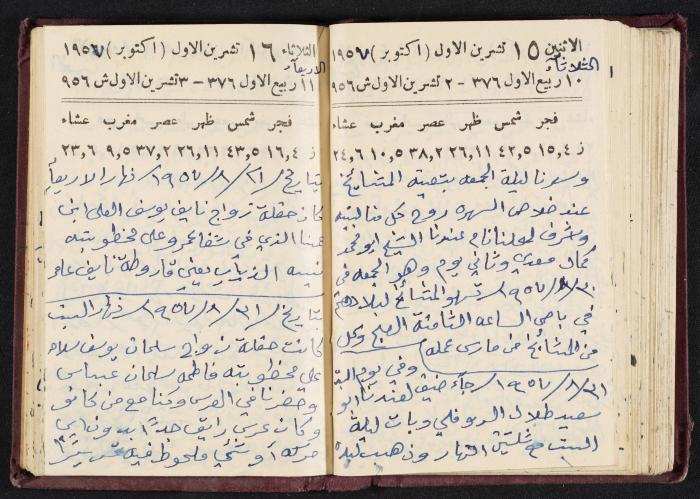 الاثنين ١٥ تشرين الاول (اكتوبر) ١٩٥٧
الثلاثاء
١٠ ربيع الاول ٣٧٦ - ٢ تشرين الاول ش ٩٥٦
فجر شمس ظهر عصر مغرب عشاء
ز ١٥,٤ ٤٢,٥ ٢٦,١١ ٣٨,٢ ١٠,٥ ٢٤,٦
وسهرنا ليلة الجمعه بتصيته المشايخ
عند خلاص السهره روح كل منا لبيته
وشرف لعندنا نام عندنا الشيخ ابو محمد
كمال معدي وثاني يوم وهو الجمعه في
٣٠/٨/١٩٥٧ المشايخ لبلادهم
في باص الساعه الثامنة الصبح
من المشايخ من
وفي يوم السبت
٣١/٨/١٩٥٧ جاء ضيق لعندنا ابو
سعيد طلال وبات ليلة
السبت مع النهار وذهب لبلده
الثلاثاء ١٦ تشرين الاول (اكتوبر) ١٩٥٧
الاربعاء
١١ ربيع الاول ٣٧٦ - ٣ تشرين الاول ش ٩٥٦
فجر شمس ظهر عصر مغرب عشاء
ز ١٦,٤ ٤٣,٥ ٢٦,١١ ٣٧,٢ ٩,٥ ٢٣,٦
بتاريخ ٢١/٨/١٩٥٧ نهار الاربعاء
كان حفلة زواج نايف يوسف العلي ابن
عمنا الذي في شفاعمرو على مخطوبته
نايف عامر
بتاريخ ٣١/٨/١٩٥٧ نهار السبت
كانت حفلة زواج سلمان يوسف سلامه
على مخطوبته فاطمه سلمان عباس
وحضرنا في العرس وكنا مع من كانو
وكان عرس رايق جداً بدون اي
حركه او شيء ملحوظ فيه